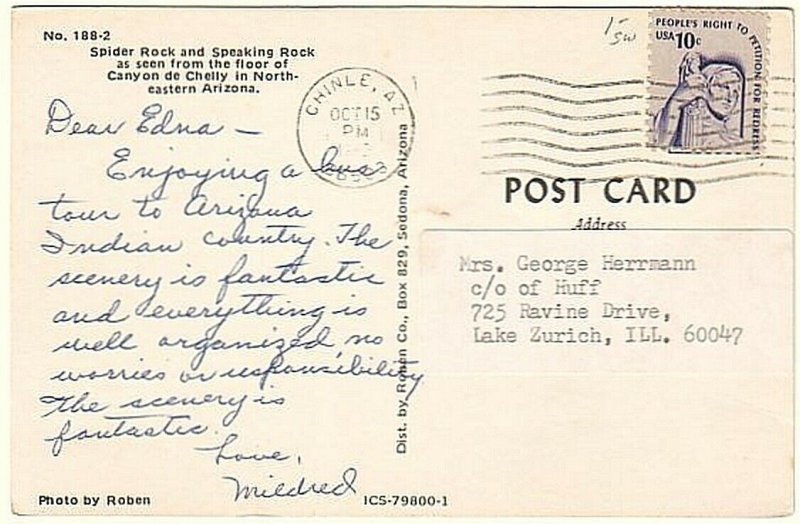 No. 188-2
Spider Rock and Speaking Rock
as seen from the floor of
Canyon de Chelly in North-
eastern Arizona.
Dear Edna —
Enjoying a bus
tour to Arizona
Indian country. The
scenery is fantastic
and everything is
well organized, no
worries or responsibility
The scenery is
fantastic.
Love,
Mildred
Photo by Roben
ICS-79800-1
Dist. by Roben Co., Box 829, Sedona, Arizona
CHINLE, AZ
OCT 15
PM
PEOPLE'S RIGHT TO PETITION FOR REDRESS
USA 10c
POST CARD
Address
Mrs. George Herrmann
c/o of Huff
725 Ravine Drive,
Lake Zurich, ILL. 60047